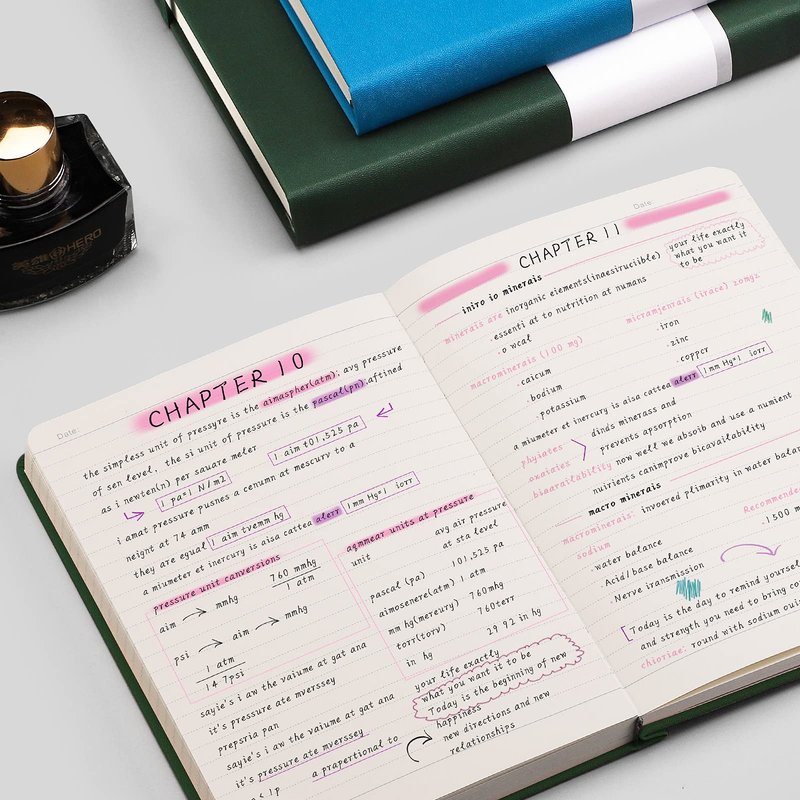 英雄 HERO
Date:
CHAPTER 10
the simpless unit of pressyre is the aimaspher(atm); avg pressure
of sen level, the si unit of pressure is the pascal(pn):aftined
as i newten(n) per sauare meler
1 aim to1,525 pa
1 pa=1 N/m2
i amat pressure pusnes a cenumn at mescurv to a
neignt at 74 amm
they are equal 1 aim tvemm hg
alerr
1mm Hg=1 iorr
a miumeter et inercury is aisa cattea
pressure unit canversions
aim → mmhg
760 mmhg
1 atm
aim → mmhg
psi
1 atm
14 7psi
sayie's i aw the vaiume at gat ana
it's pressure ate mverssey
prepsria pan
sayie's i aw the vaiume at gat ana
it's pressure ate mverssey
a prapertional to
agmmear units at pressure
unit
avg air pressure
at sta level
pascal (pa)
101,525 pa
aimosenere(atm)
1 atm
mm hg(mereury)
760mhg
torr(torv)
760terr
in hg
29 92 in hg
your life exactly
what you want it to be
Today is the beginning of new
happiness
new directions and new
relationships
Date:
CHAPTER 11
your life exactly
what you want it
to be
iniro io minerais
minerais are inorganic eiements(inaesiruciible)
.essenti at to nutrition at numans
.o wcal
macrominerais (100 mg)
.caicum
.bodium
.potassium
micramjenrais (irace) zomgz
.iron
.zinc
.coppcr
a miumeter et inercury is aisa cattea
alerr
1mm Hg=1 iorr
phyiates
oxaiaies
dinds minerass and
prevents apsorption
bioavailability now well we absoib and use a numient
nuirients canimprove bicavailability
macro minerais
macrominerais: invoered plimarity in water balan
sodium
Recommende
.1500 m
.water balance
.Acid/ base balance
.Nerve iransmission
Today is the day to remind yourself
and strength you need to bring co
chioriae: round with sodium ouis